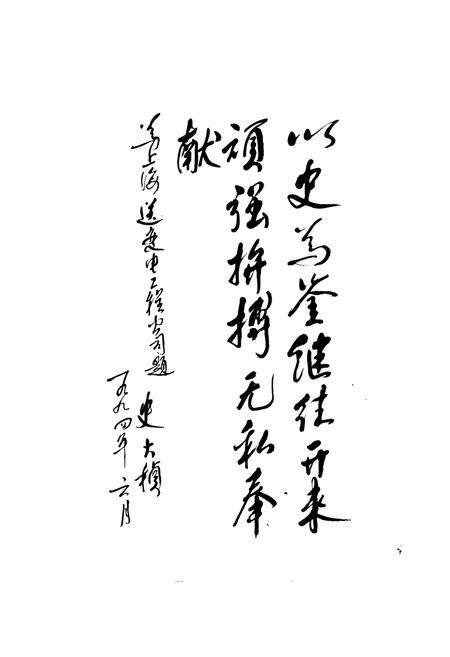 以史为鉴继往开来
顽强拚搏无私奉
献
为上海送变电工程公司题
史大桢
一九九四年六月